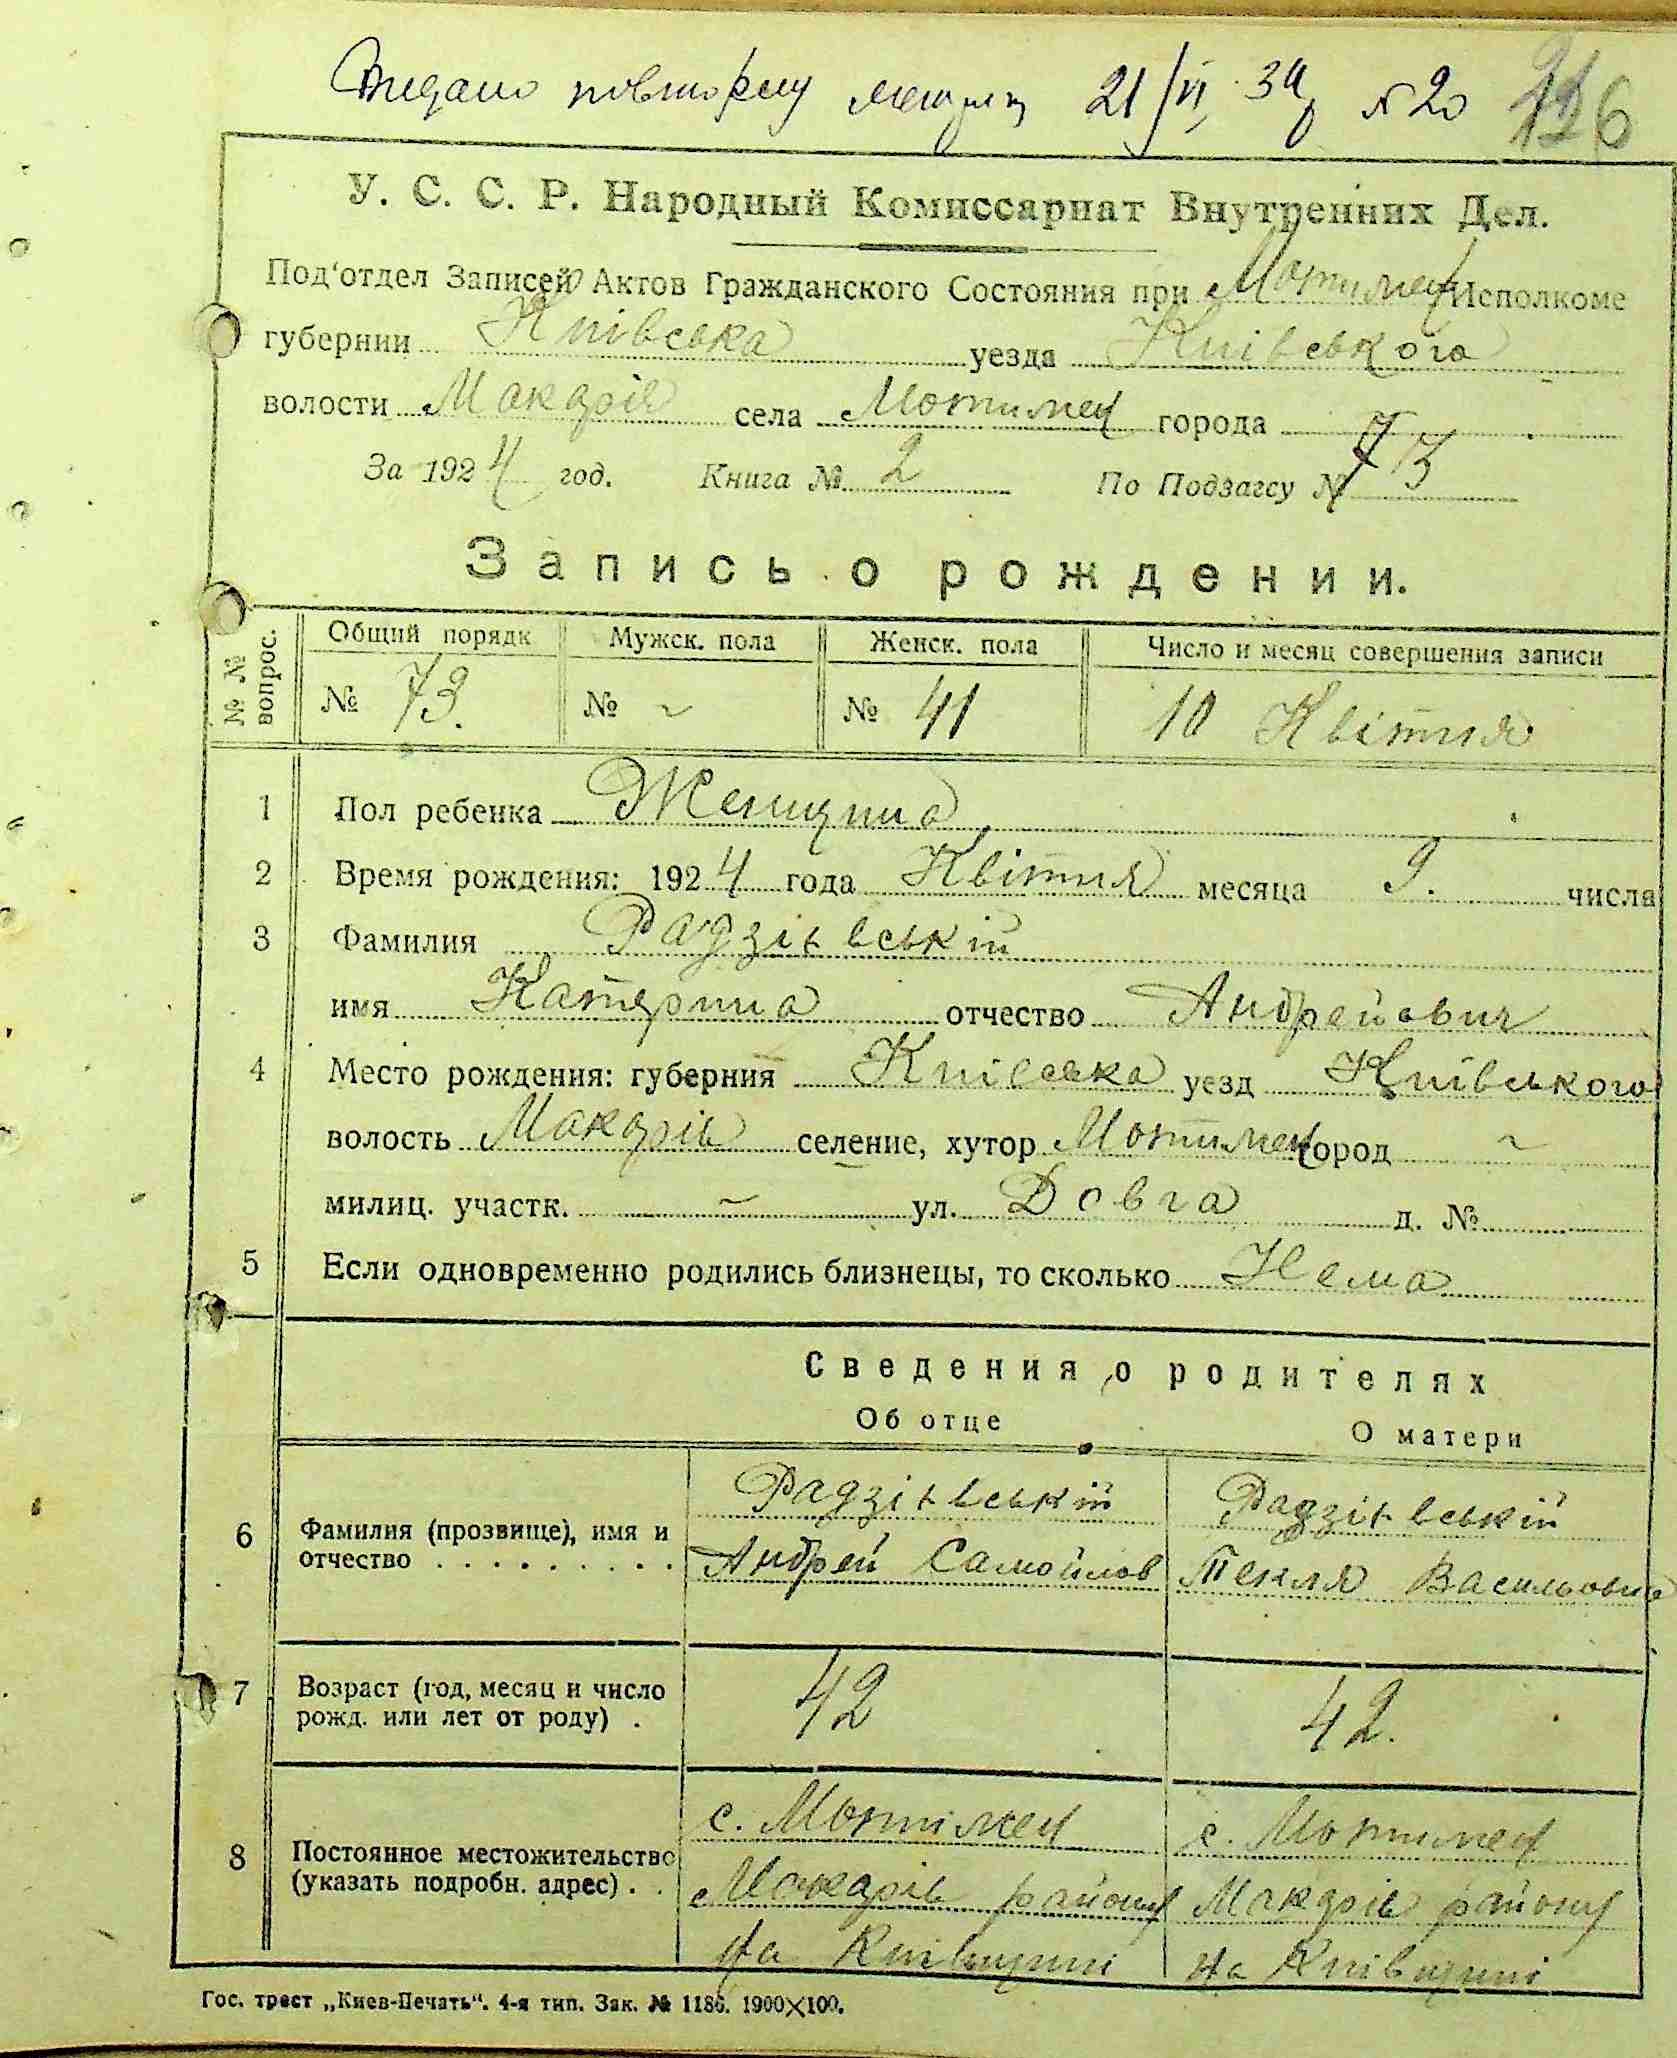 Видано повторну 21/VI 39 р № 20
У. С. С. Р. Народный Комиссариат Внутренних Дел.
Под'отдел Записей Актов Гражданского Состояния при Мотижец Исполкоме
губернии Киівська уезда Киівського
волости Макарів села Мотижец города
За 1924 год. Книга № 2 По Подзагсу № 73
Запись о рождении.
№ № вопрос. Общий порядк Мужск. пола Женск. пола Число и месяц совершения записи
№ 73. № ~ № 41 10 Квітня
1 Пол ребенка Женщина
2 Время рождения: 1924 года Квітня месяца 9. числа
3 Фамилия Радзієвській
имя Катерина отчество Андрейович
4 Место рождения: губерния Киівська уезд Киівського
волость Макарів селение, хутор Мотижец город ~
милиц. участк. ~ ул. Довга д. №
5 Если одновременно родились близнецы, то сколько Нема
Сведения о родителях
Об отце О матери
6 Фамилия (прозвище), имя и отчество . . . . . . . . . Радзієвській Андрей Самойлов Радзієвській Текля Васильовна
7 Возраст (год, месяц и число рожд. или лет от роду) . 42 42.
8 Постоянное местожительство (указать подробн. адрес) . . с. Мотижец Макарів району на Киівщині с. Мотижец Макарів району на Киівщині
Гос. трест „Киев-Печать“. 4-я тип. Зак. № 1186. 1900×100.